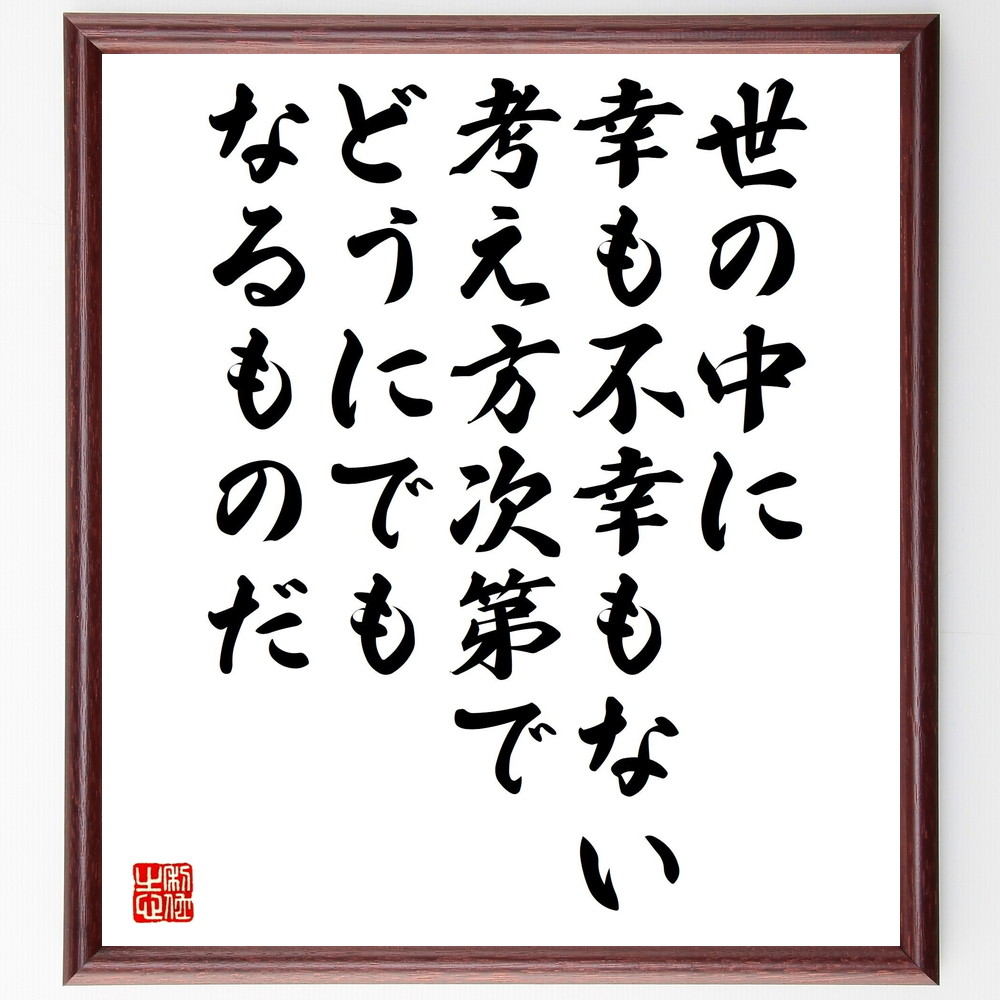 世の中に
幸も不幸もない
考え方次第で
どうにでも
なるものだ